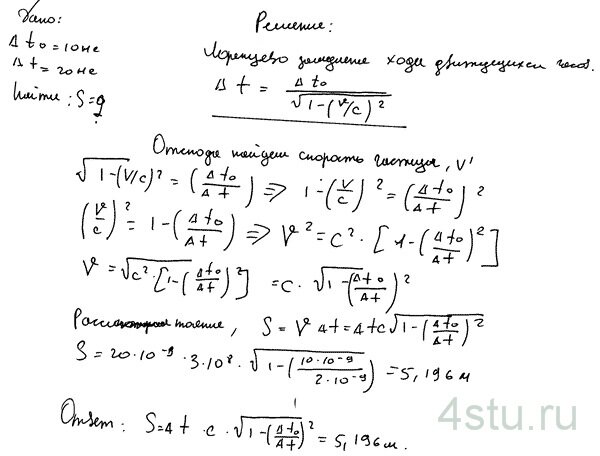 Дано:
Δ t₀ = 10 нс
Δ t = 20 нс
Найти: S = ?
Решение:
Лоренцево замедление хода движущихся часов.
Δ t = Δ t₀ / √(1-(v/c)²)
Отсюда найдем скорость частицы, V
√(1-(V/c)²) = (Δ t₀/Δ t) => 1-(V/c)² = (Δ t₀/Δ t)²
(V/c)² = 1-(Δ t₀/Δ t) => V² = C² · [1-(Δ t₀/Δ t)²]
V = √(c² · [1-(Δ t₀/Δ t)²]) = c · √(1-(Δ t₀/Δ t)²)
S = V Δt = Δt c √(1-(Δ t₀/Δ t)²)
S = 20 · 10⁻⁹ · 3 · 10⁸ · √(1-(10 · 10⁻⁹/2 · 10⁻⁹)) = 5,196 м
Ответ: S = Δ t · c · √(1-(Δ t₀/Δ t)²) = 5,196 м.
4stu.ru